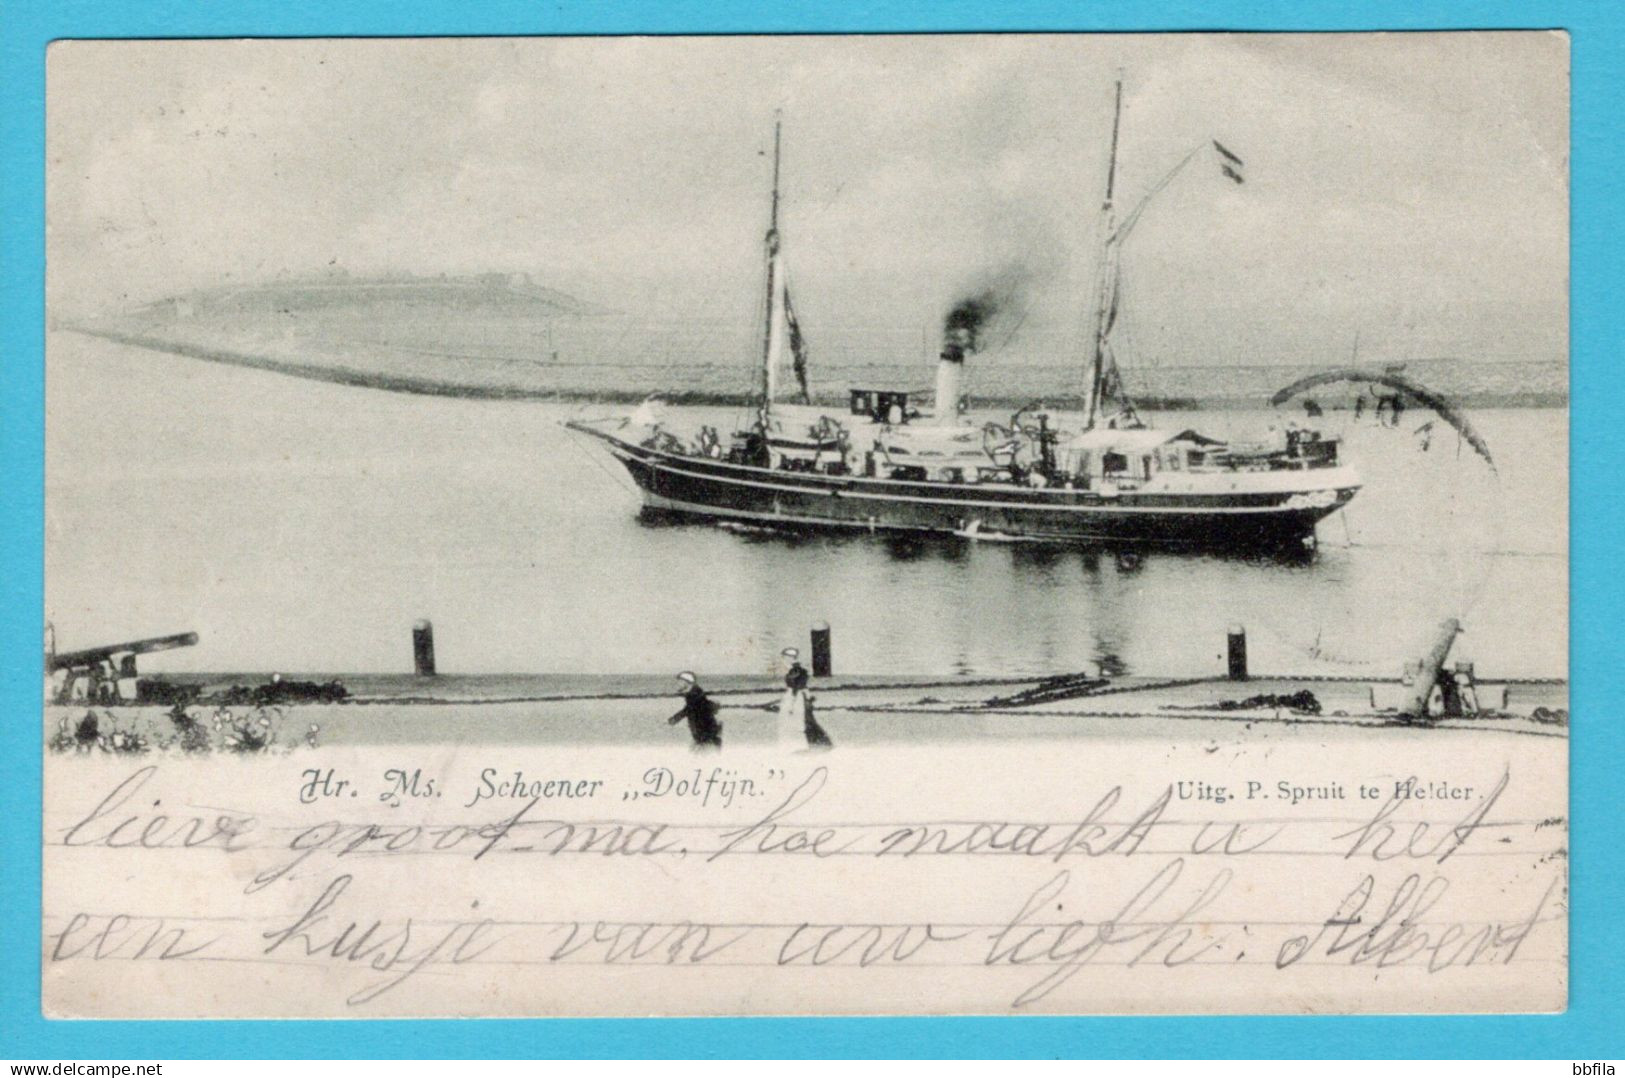 Hr. Ms. Schoener „Dolfijn."
Uitg. P. Spruit te Helder.
lieve groot-ma, hoe maakt u het
een kusje van uw liefh: Albert
bbfila